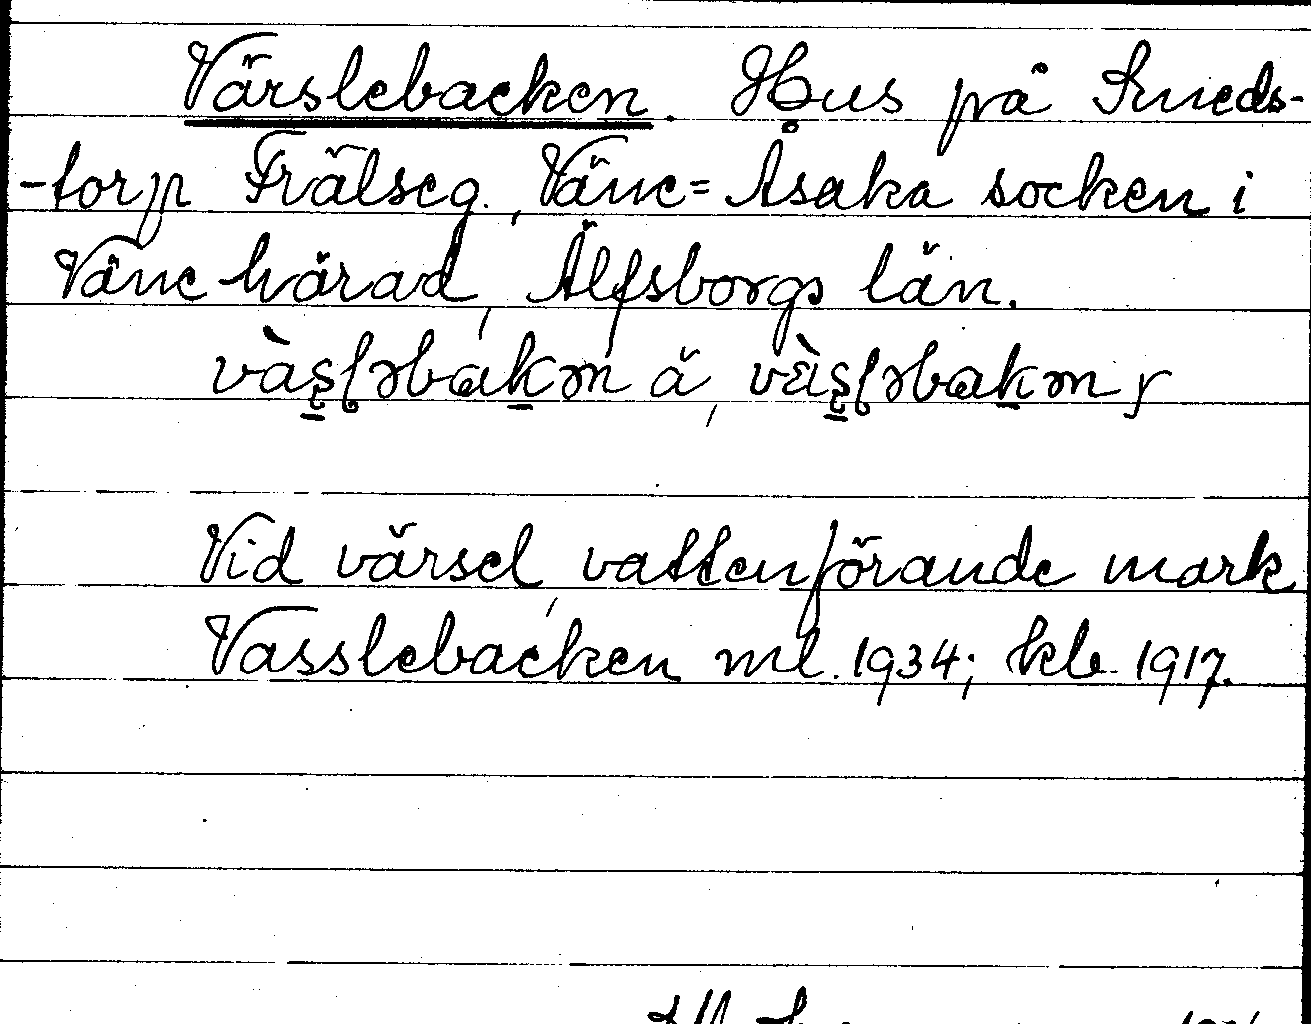 Värslebacken. Hus på Smeds-
-torp Frälseg., Väne=Åsaka socken i
Väne härad, Älfsborgs län.
Vid värsel, vattenförande mark
Vasslebacken ml. 1934; kb 1917.